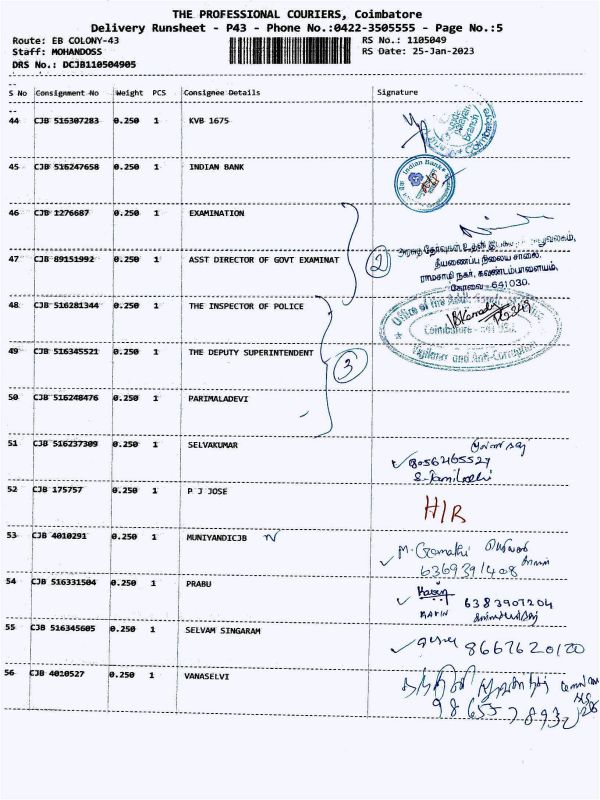 THE PROFESSIONAL COURIERS, Coimbatore
Delivery Runsheet - P43 - Phone No.:0422-3505555 - Page No.:5
Route: EB COLONY-43 RS No.: 1105049
Staff: MOHANDOSS RS Date: 25-Jan-2023
DRS No.: DCJB110504905
S No Consignment No Weight PCS Consignee Details Signature
44 CJB 516307283 0.250 1 KVB 1675
45 CJB 516247658 0.250 1 INDIAN BANK
Indian Bank
46 CJB 1276687 0.250 1 EXAMINATION
2
47 CJB 89151992 0.250 1 ASST DIRECTOR OF GOVT EXAMINAT
தீயணைப்பு நிலைய சாலை,
ராமசாமி நகர், கவுண்டம்பாளையம்,
கோவை - 641030.
48 CJB 516281344 0.250 1 THE INSPECTOR OF POLICE
Vigilance and Anti-Corruption
49 CJB 516345521 0.250 1 THE DEPUTY SUPERINTENDENT
3
50 CJB 516248476 0.250 1 PARIMALADEVI
51 CJB 516237309 0.250 1 SELVAKUMAR
8056265527
52 CJB 175757 0.250 1 P J JOSE
H/R
53 CJB 4010291 0.250 1 MUNIYANDICJB
6369391408
54 CJB 516331504 0.250 1 PRABU
6383907204
KAVIN
55 CJB 516345605 0.250 1 SELVAM SINGARAM
8667620120
56 CJB 4010527 0.250 1 VANASELVI